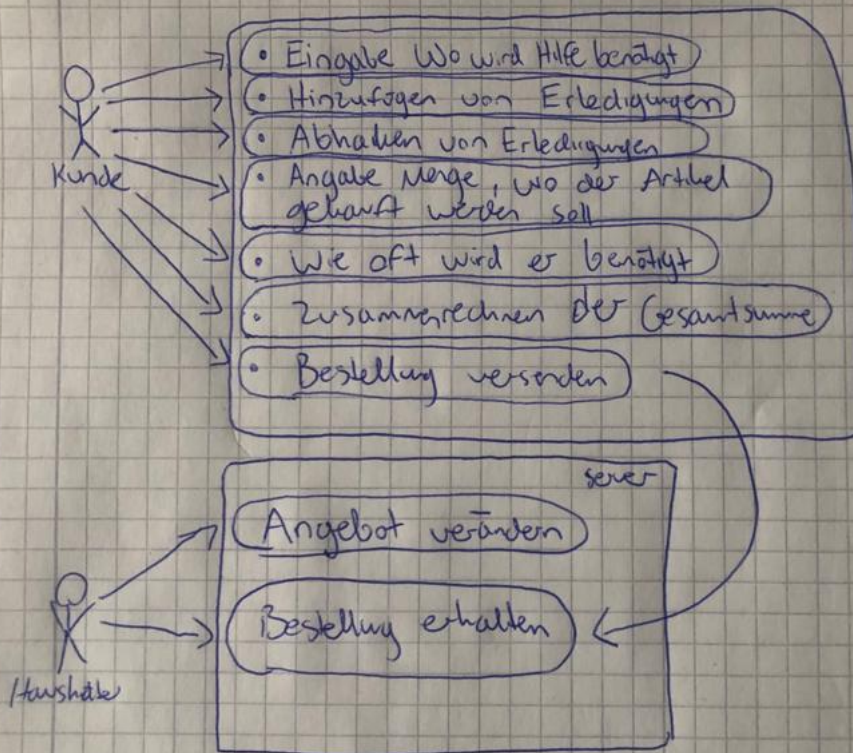 • Eingabe Wo wird Hilfe benötigt
• Hinzufügen von Erledigungen
• Abhaken von Erledigungen
Kunde
• Angabe Menge, wo der Artikel
gekauft werden soll
• Wie oft wird er benötigt
• Zusammenrechnen der Gesamtsumme
• Bestellung versenden
server
Angebot verändern
Bestellung erhalten